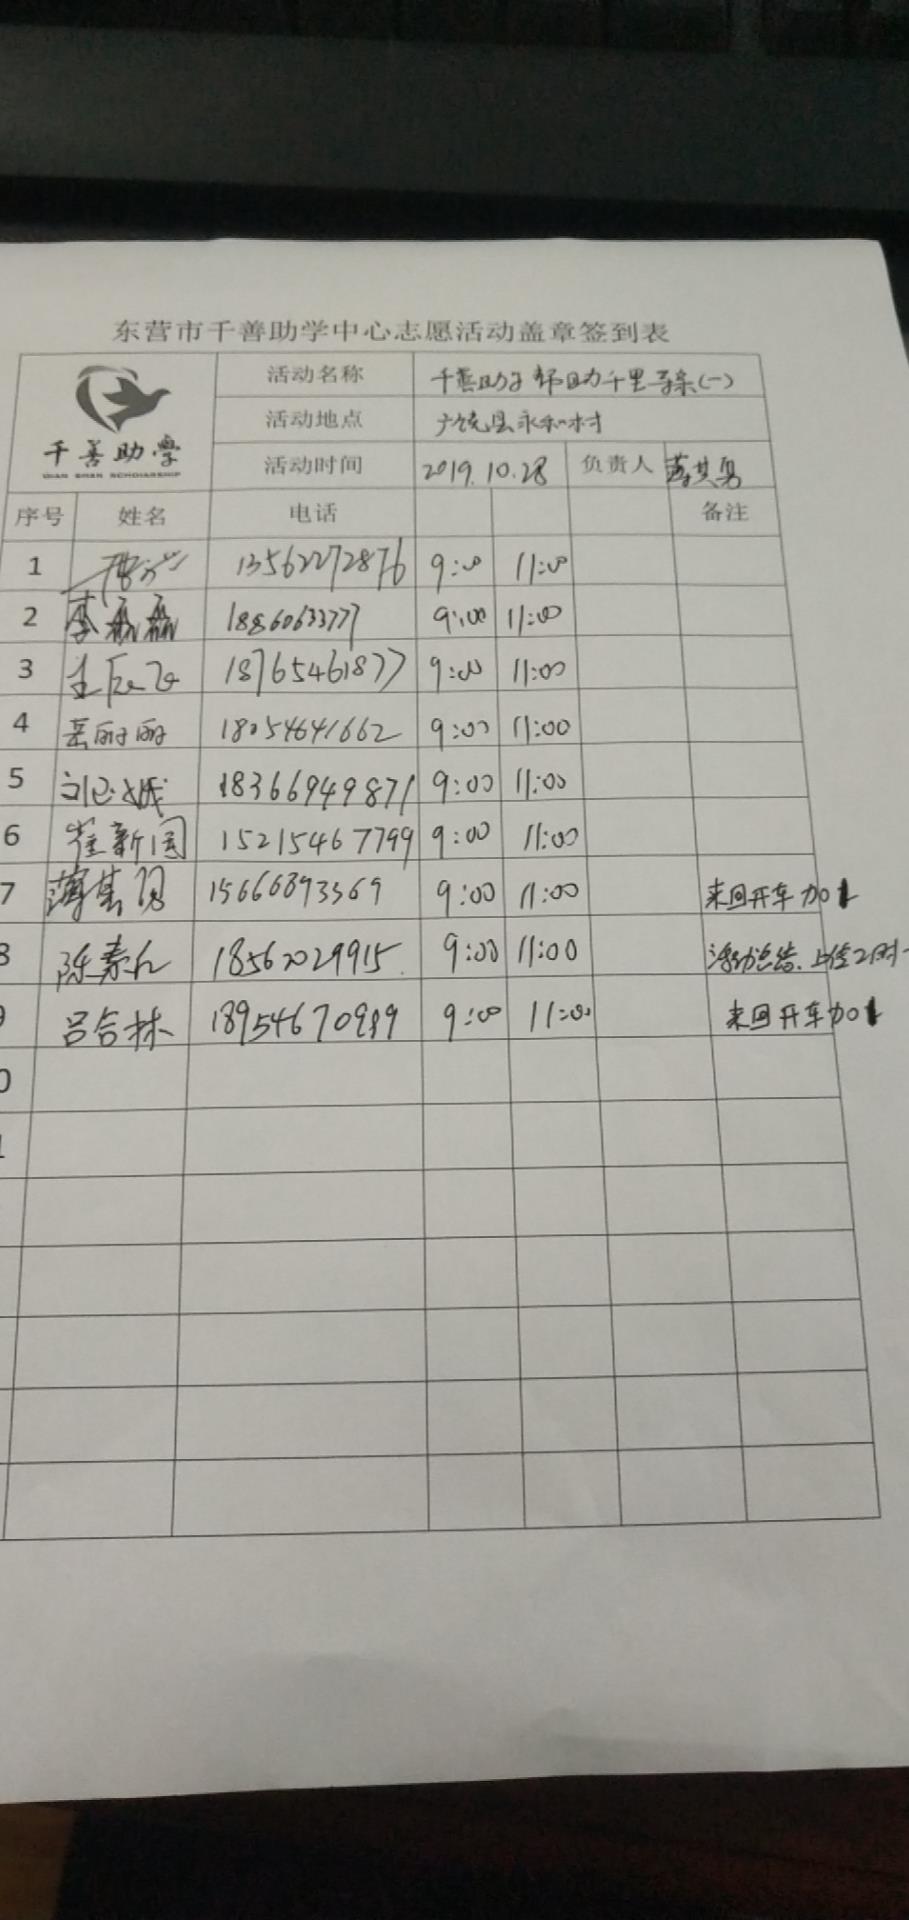 东营市千善助学中心志愿活动盖章签到表
千善助学
QIAN SHAN SCHOLARSHIP
活动名称 千善助学 帮助千里寻亲(一)
活动地点 广饶县永和村
活动时间 2019.10.28 负责人 薄其勇
序号 姓名 电话 备注
1 13562272876 9:00 11:00
2 李磊磊 18860633777 9:00 11:00
3 18765461877 9:00 11:00
4 岳丽丽 18054641662 9:00 11:00
5 18366949871 9:00 11:00
6 崔新国 15215467799 9:00 11:00
7 15666893369 9:00 11:00 来回开车加1
8 陈素红 18562029915 9:00 11:00 活动总结、上传2时
9 吕合林 18954670989 9:00 11:00 来回开车加1